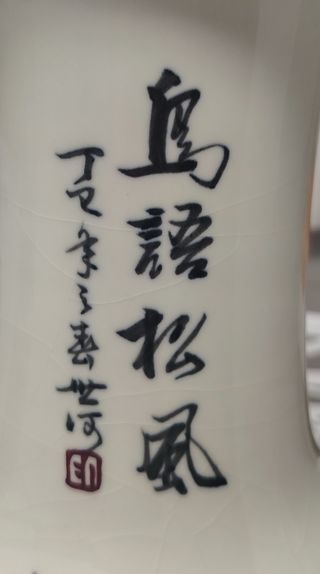 鳥語松風
丁巳年之春世河
印